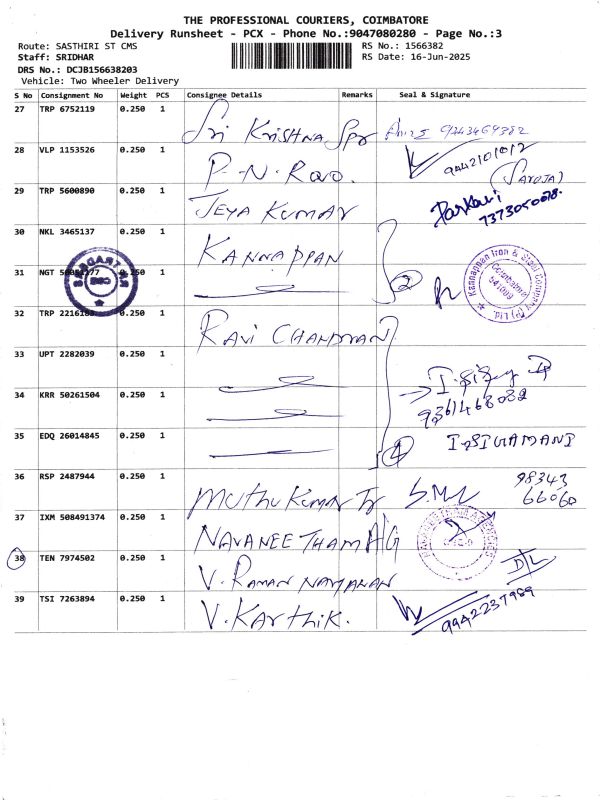 THE PROFESSIONAL COURIERS, COIMBATORE
Delivery Runsheet - PCX - Phone No.:9047080280 - Page No.:3
Route: SASTHIRI ST CMS RS No.: 1566382
Staff: SRIDHAR RS Date: 16-Jun-2025
DRS No.: DCJB156638203
Vehicle: Two Wheeler Delivery
S No Consignment No Weight PCS Consignee Details Remarks Seal & Signature
27 TRP 6752119 0.250 1 Sri Krishna Spr
28 VLP 1153526 0.250 1 P-N-Rao. 9442101012
(Saroja)
29 TRP 5600890 0.250 1 Jeya Kumar
7373050078.
30 NKL 3465137 0.250 1 Kannappan
Kannappan Iron & Steel Company (P) Ltd.
Coimbatore
641009
31 NGT 0.250 1 2
32 TRP 0.250 1 Ravi Chandran
33 UPT 2282039 0.250 1
34 KRR 50261504 0.250 1 9361468082
35 EDQ 26014845 0.250 1 4 I.SIGAMANI
36 RSP 2487944 0.250 1 Muthu Kumar Tr 98343
66060
37 IXM 508491374 0.250 1 Navaneetham AG
38 TEN 7974502 0.250 1 V. Raman Narayanan D/L
39 TSI 7263894 0.250 1 V. Karthik. 9942237989